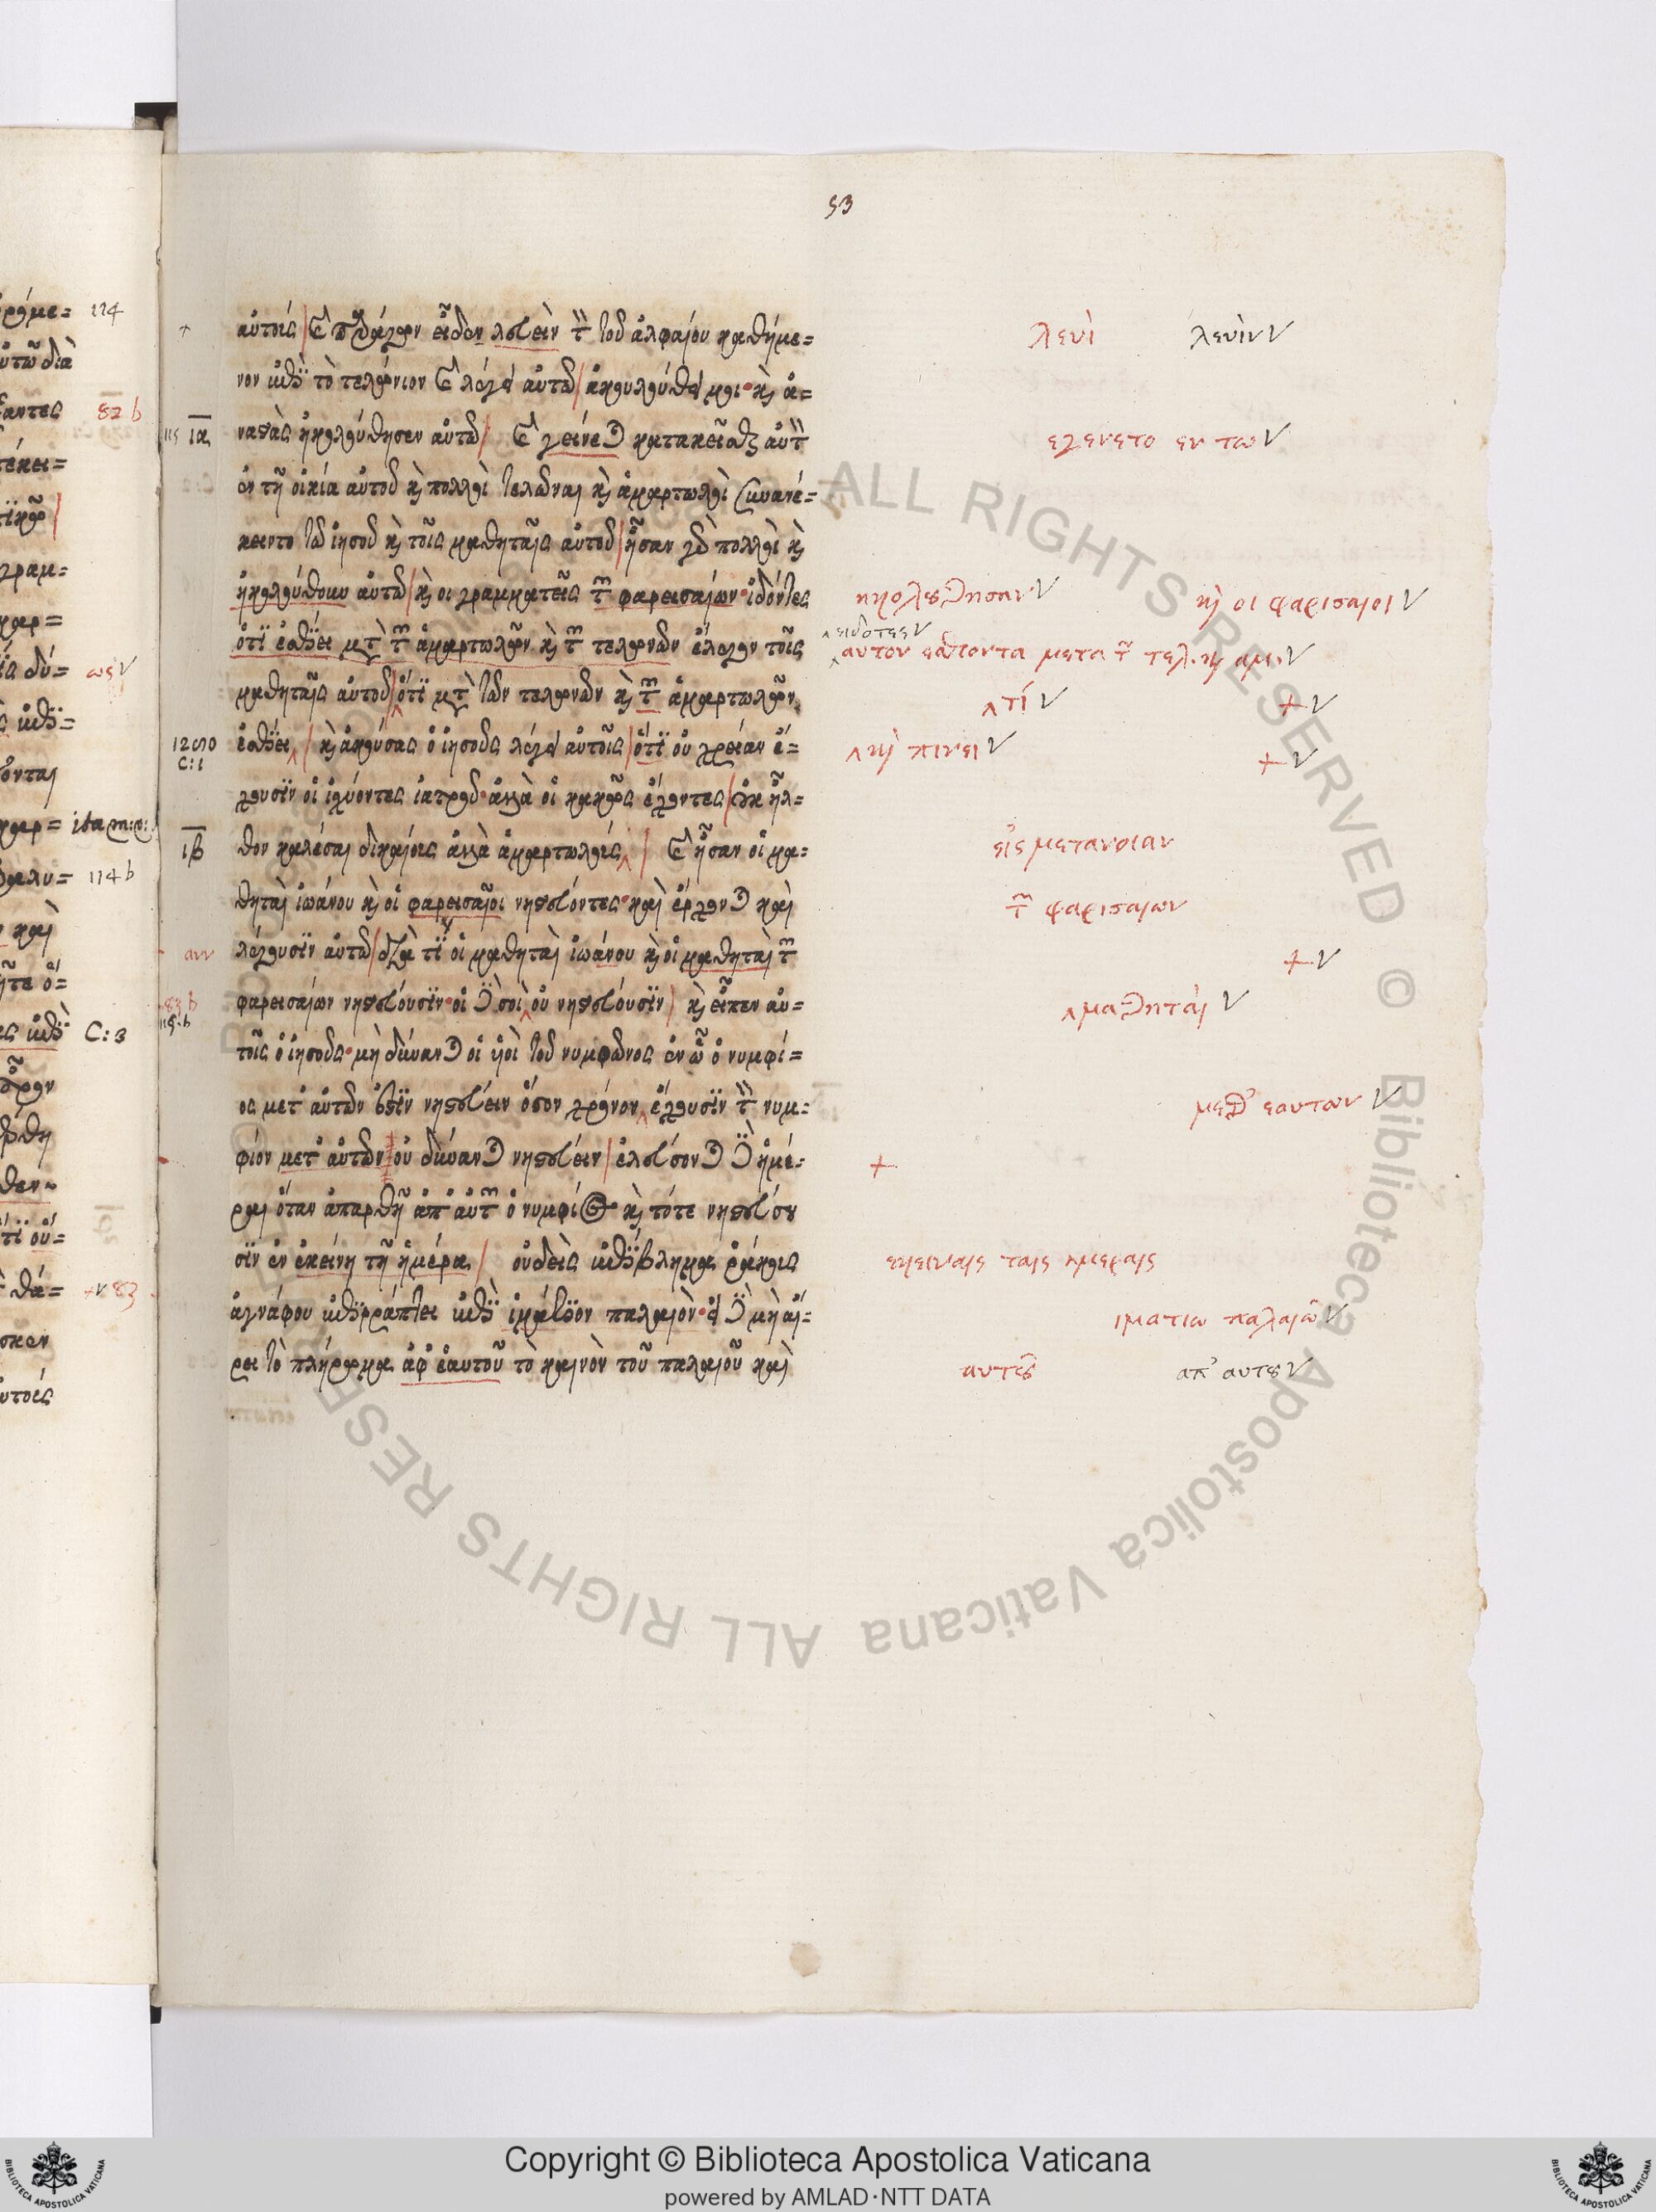 53
αὐτούς / Καὶ παράγων εἶδεν λευεὶν τὸν τοῦ ἀλφαίου καθήμε=
νον ἐπὶ τὸ τελώνιον Καὶ λέγει αὐτῷ / ἀκολούθει μοι· κỳ ἀ=
ναστὰς ἠκολούθησεν αὐτῷ / Καὶ γείνεται κατακεῖσθαι αὐτὸν
ἐν τῇ οἰκία αὐτοῦ κỳ πολλοὶ τελῶναι κỳ ἁμαρτωλοὶ συνανέ=
κειντο τῶ ἰησοῦ κỳ τοῖς μαθηταῖς αὐτοῦ / ἦσαν γὰρ πολλοὶ κỳ
ἠκολούθουν αὐτῶ / κỳ οι γραμματεῖς τῶν φαρεισαίων· ἰδόντες
ὁτϊ ἐσθίει μετὰ τῶν ἁμαρτωλῶν κỳ τῶν τελωνῶν ἔλεγον τοῖς
μαθηταῖς αὐτοῦ / ὅτϊ μετὰ τῶν τελωνῶν κỳ τῶν ἁμαρτωλῶν
ἐσθίει / κỳ ἀκούσας ὁ ἰησοῦς λέγει αὐτοῖς / ὅτϊ οὐ χρείαν ἔ=
χουσϊν οἱ ἰσχύοντες ἰατροῦ· ἀλλὰ οἱ κακῶς ἔχοντες / οὐκ ἦλ=
θον καλέσαι δικαίους ἀλλὰ ἁμαρτωλούς / Καὶ ἦσαν οἱ μα=
θηταὶ ἰωάνου κỳ οἱ φαρεισαῖοι νηστεύοντες· καὶ ἔρχονται καὶ
λέγουσϊν αὐτῶ / διὰ τϊ οἱ μαθηταὶ ἰωάνου κỳ οἱ μαθηταὶ τῶν
φαρεισαίων νηστεύουσϊν· οἱ δὲ σοὶ οὐ νηστεύουσϊν / κỳ εἶπεν αὐ=
τοῖς ὁ ἰησοῦς· μὴ δύνανται οἱ ὑοὶ τοῦ νυμφῶνος ἐν ᾧ ὁ νυμφί=
ος μετ αὐτῶν ἐστϊν νηστεύειν ὅσον χρόνον ἔχουσϊν τὸν νυμ=
φίον μετ αὐτῶν οὐ δύνανται νηστεύειν / ἐλεύσονται δὲ ἡμέ=
ραι ὅταν ἀπαρθῇ ἀπ αὐτῶν ὁ νυμφίος κỳ τότε νηστεύσου
σϊν ἐν ἐκείνη τῇ ἡμέρα / οὐδεὶς ἐπίβλημα ῥάκους
ἀγνάφου ἐπιρράπτει ἐπὶ ἱμάτιον παλαιὸν· εἰ δὲ μὴ αἴ=
ρει τὸ πλήρωμα ἀφ ἑαυτοῦ τὸ καινὸν τοῦ παλαιοῦ καὶ
λευὶ λευὶν V
εγενετο εν τω V
ηκολουθησαν V κỳ οι φαρισαιοι V
ειδοτες V
αυτον εσθιοντα μετα τῶν τελ. κỳ αμ. V
τί V + V
κỳ πινει V + V
εἰς μετανοιαν
τῶν φαρισαίων
+ V
μαθηταὶ V
μεθ' εαυτων V
+
εκειναις ταις ημεραις
ιματιω παλαιῶ V
αυτοῦ απ' αυτου V
115 ια
C:1
ιβ
83 b
115·b
114
82 b
ως V
114 b
C:3
83
ALL RIGHTS RESERVED © Biblioteca Apostolica Vaticana ALL RIGHTS RESERVED
Copyright © Biblioteca Apostolica Vaticana
powered by AMLAD·NTT DATA
BIBLIOTECA APOSTOLICA VATICANA
BIBLIOTECA APOSTOLICA VATICANA